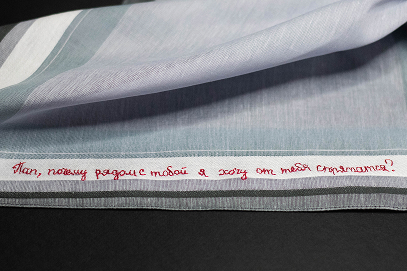 Пап, почему рядом с тобой я хочу от тебя спрятатся?